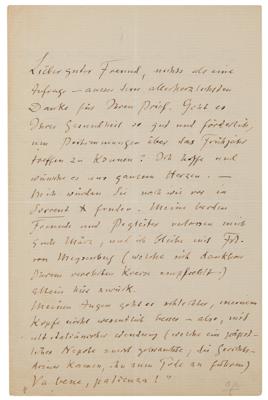 Lieber guter Freund, nichts als eine
Anfrage — ausser dem allerherzlichsten
Danke für Ihren Brief. Geht es
Ihrer Gesundheit so gut und förderlich,
um Bestimmungen über das Frühjahr
treffen zu können? Ich hoffe und
wünsche es aus ganzem Herzen. —
Mich würden Sie noch wie vor in
Sorrent finden. Meine beiden
Freunde und Begleiter verlassen mich
Ende März, und ich bleibe mit Frl.
von Meysenbug (welche sich dankbar
Ihrem verehrten Kreise empfiehlt)
allein hier zurück.
Meinen Augen geht es schlechter, meinem
Kopfe nicht wesentlich besser — also, mit
italiänischer Wendung (welche ein
Neapel
zum Tode zu führen)
Va bene, patienza! "